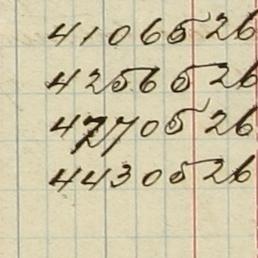 41065 26
42565 26
42705 26
44305 26